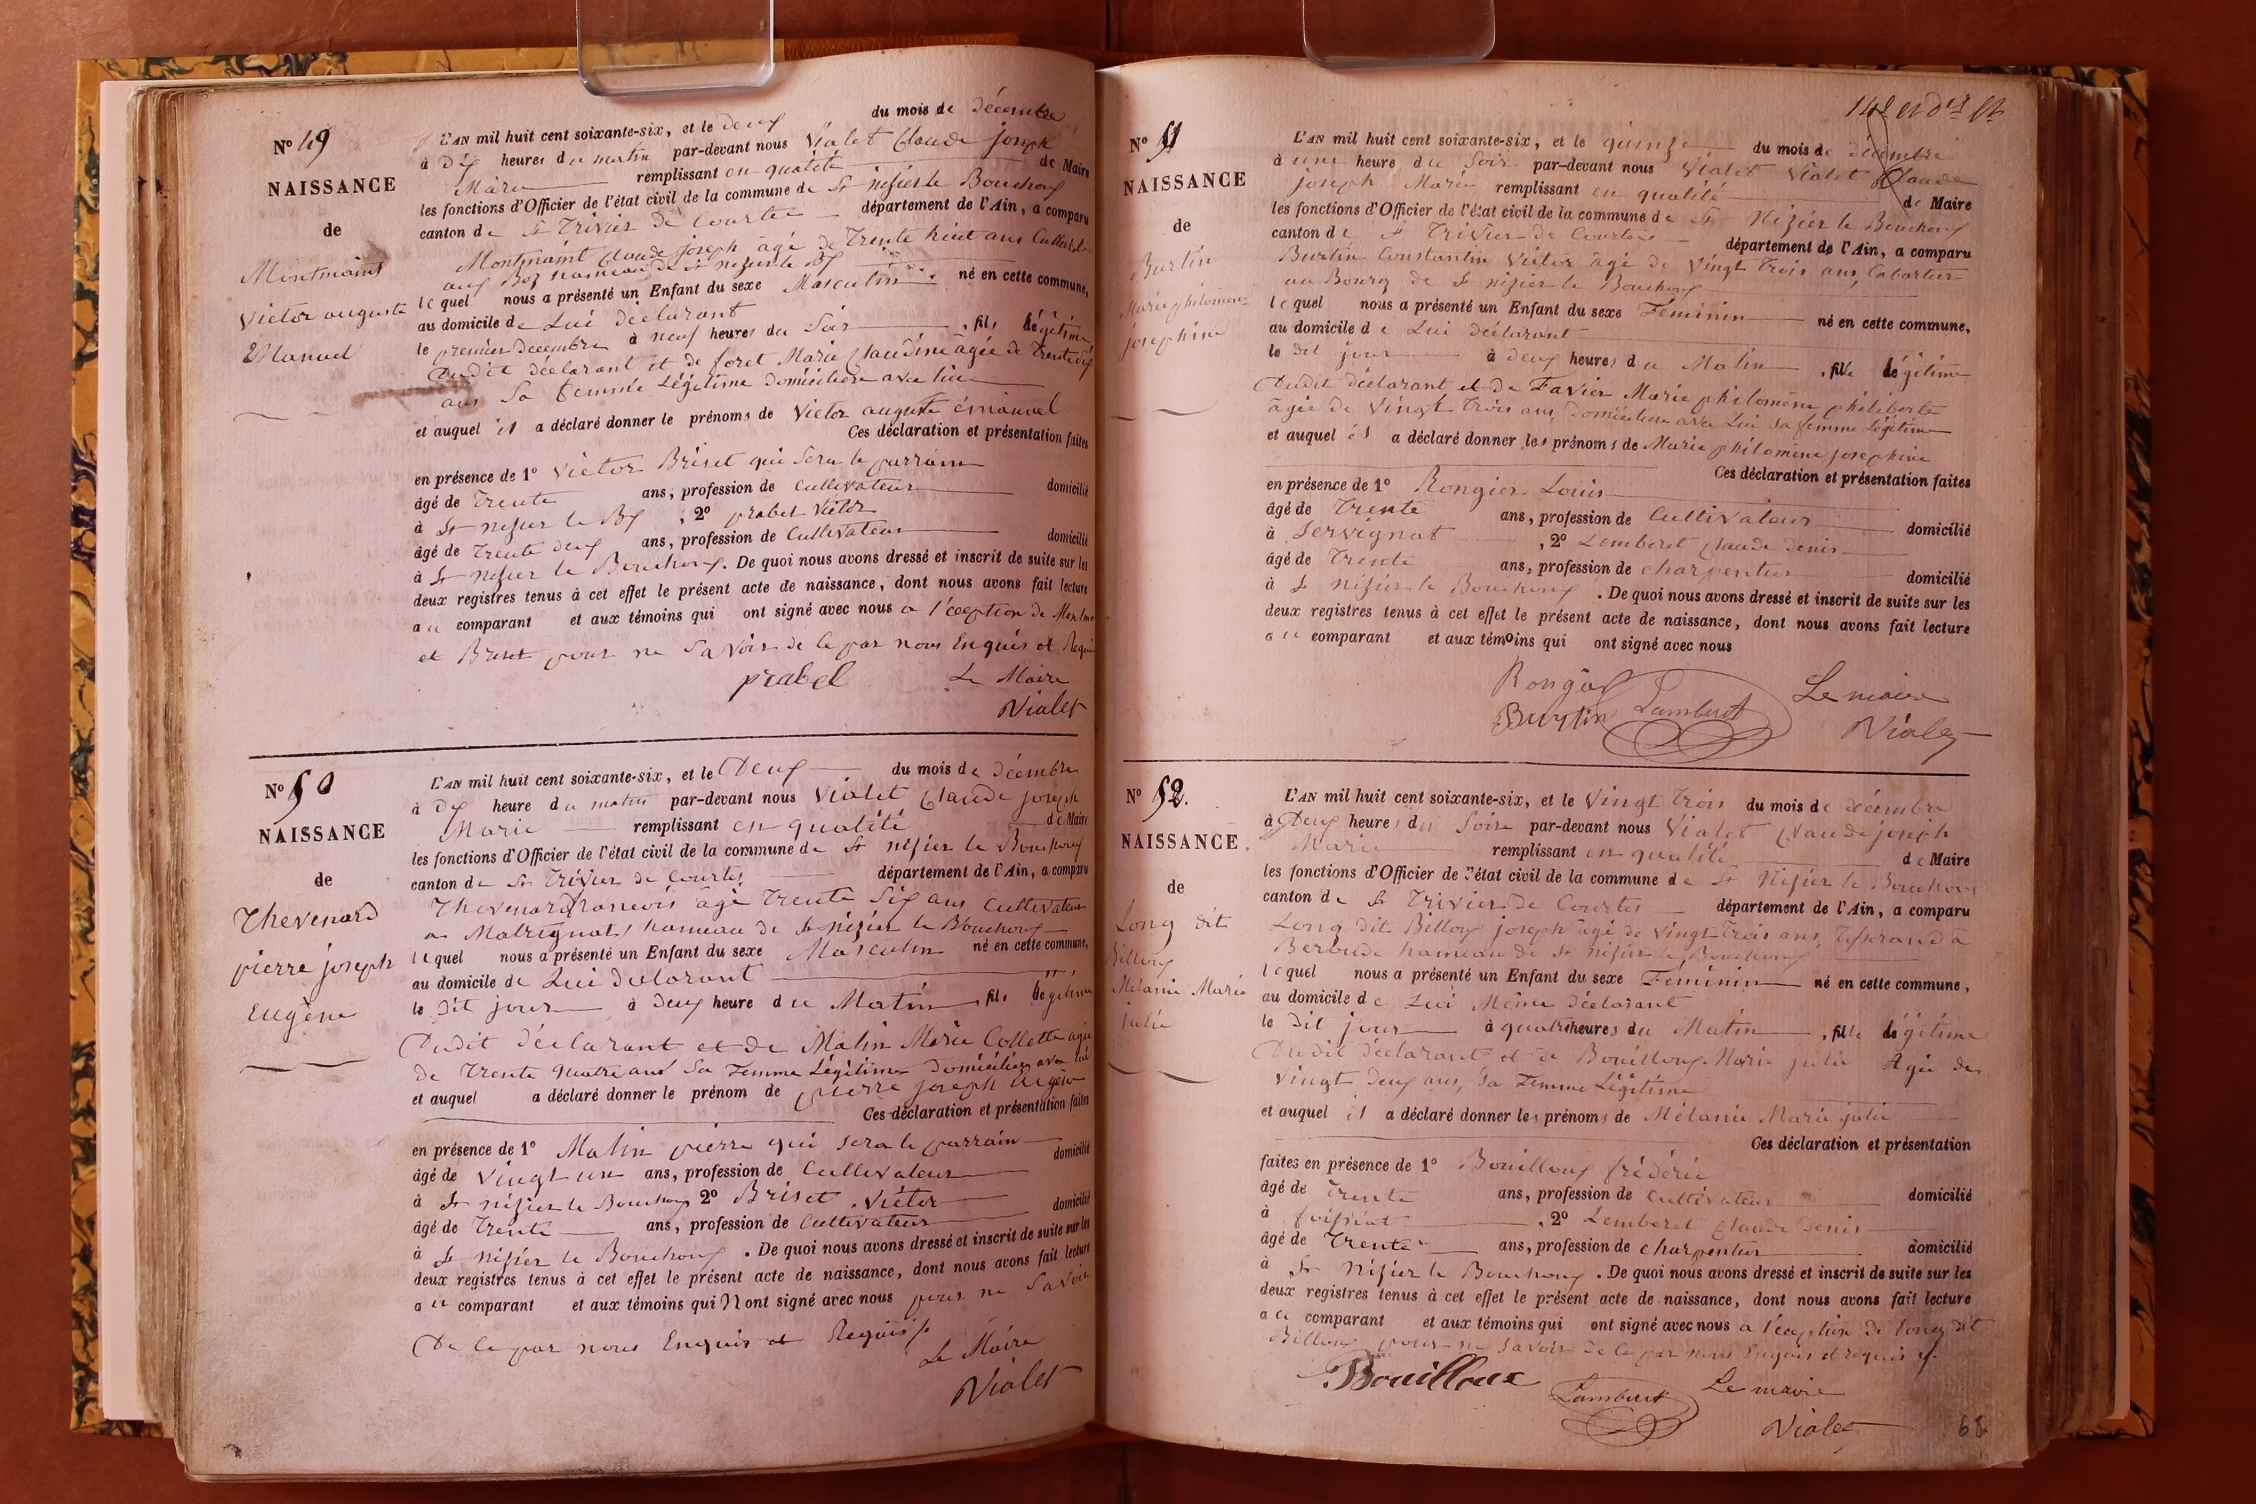 No 49
NAISSANCE
de
Montmaint
Victor auguste
Emanuel
L'AN mil huit cent soixante-six, et le deux du mois de décembre
à dix heures du matin par-devant nous Vialet Claude joseph
Marie remplissant en qualité de Maire
les fonctions d'Officier de l'état civil de la commune de St nizier le Bouchoux
canton de St Trivier de Courtes département de l'Ain, a comparu
Montmaint Claude joseph âgé de Trente huit ans Cultivateur
aux Boz hameau de St nizier le Bx
lequel nous a présenté un Enfant du sexe Masculin né en cette commune,
au domicile de Lui déclarant
le premier Décembre à neuf heures du Soir, fils légitime
Dudit déclarant et de foret Marie Claudine âgée de Trente six
ans Sa femme Légitime domiciliée avec lui
et auquel il a déclaré donner le prénoms de Victor auguste émanuel
Ces déclaration et présentation faites
en présence de 1o Victor Briset qui Sera le parrain
âgé de Trente ans, profession de Cultivateur domicilié
à St nizier le Bx, 2o prabel Victor
âgé de Trente deux ans, profession de Cultivateur domicilié
à St nizier le Bouchoux. De quoi nous avons dressé et inscrit de suite sur les
deux registres tenus à cet effet le présent acte de naissance, dont nous avons fait lecture
au comparant et aux témoins qui ont signé avec nous a l'éception de
et Briset pour ne Savoir de ce par nous Enquis et Requis
prabel Le Maire
Vialet
No 50
NAISSANCE
de
Thevenard
pierre joseph
Eugène
L'AN mil huit cent soixante-six, et le Deux du mois de décembre
à dix heure du matin par-devant nous Vialet Claude joseph
Marie remplissant en qualité de Maire
les fonctions d'Officier de l'état civil de la commune de St nizier le Bouchoux
canton de St Trivier de Courtes département de l'Ain, a comparu
Thevenard francois âgé Trente Six ans Cultivateur
a Matrignat hameau de St nizier le Bouchoux
lequel nous a présenté un Enfant du sexe Masculin né en cette commune,
au domicile de Lui déclarant
le dit jour à deux heure du Matin, fils légitime
Dudit déclarant et de Matin Marie Collette agée
de Trente quatre ans Sa Femme Légitime Domiciliée avec lui
et auquel a déclaré donner le prénom de pierre joseph Eugène
Ces déclaration et présentation faites
en présence de 1o Matin pierre qui sera le parrain
âgé de Vingt un ans, profession de Cultivateur domicilié
à St nizier le Bouchoux 2o Briset Victor
âgé de Trente ans, profession de Cultivateur domicilié
à St nizier le Bouchoux. De quoi nous avons dressé et inscrit de suite sur les
deux registres tenus à cet effet le présent acte de naissance, dont nous avons fait lecture
au comparant et aux témoins qui N ont signé avec nous pour ne Savoir
De ce par nous Enquis et Requis
Le Maire
Vialet
No 51
NAISSANCE
de
Burtin
Marie philomène
joséphine
L'AN mil huit cent soixante-six, et le quinze du mois de décembre
à une heure du Soir par-devant nous Vialet Vialet Claude
joseph Marie remplissant en qualité de Maire
les fonctions d'Officier de l'état civil de la commune de St Nizier le Bouchoux
canton de St Trivier de Courtes département de l'Ain, a comparu
Burtin Constantin Victor âgé de Vingt trois ans, Cabartier
au Bourg de St nizier le Bouchoux
lequel nous a présenté un Enfant du sexe Féminin né en cette commune,
au domicile de Lui déclarant
le dit jour à deux heures du Matin, fille légitime
Dudit déclarant et de Favier Marie philomène philiberte
âgée de Vingt trois ans, domiciliée avec Lui Sa femme Légitime
et auquel il a déclaré donner les prénoms de Marie philomène joséphine
Ces déclaration et présentation faites
en présence de 1o Rongier Louis
âgé de Trente ans, profession de Cultivateur domicilié
à Servignat, 2o Lemberet Claude Denis
âgé de Trente ans, profession de charpentier domicilié
à St nizier le Bouchoux. De quoi nous avons dressé et inscrit de suite sur les
deux registres tenus à cet effet le présent acte de naissance, dont nous avons fait lecture
au comparant et aux témoins qui ont signé avec nous
Rongier Le maire
Burtin Lamberet Vialet
No 52.
NAISSANCE.
de
Long dit
Billoux
Mélanie Marie
julie
L'AN mil huit cent soixante-six, et le Vingt Trois du mois de décembre
à Deux heures du Soir par-devant nous Vialet Claude joseph
Marie remplissant en qualité de Maire
les fonctions d'Officier de l'état civil de la commune de St Nizier le Bouchoux
canton de St Trivier de Courtes département de l'Ain, a comparu
Long dit Billoux joseph âgé de Vingt Trois ans, Tisserand à
Beroude hameau de St nizier le Bouchoux
lequel nous a présenté un Enfant du sexe Féminin né en cette commune,
au domicile de Lui Même déclarant
le dit jour à quatre heures du Matin, fille légitime
Dudit déclarant et de Bouilloux Marie julie Agée de
Vingt deux ans, Sa Femme Légitime
et auquel il a déclaré donner les prénoms de Mélanie Marie julie
Ces déclaration et présentation
faites en présence de 1o Bouilloux frédéric
âgé de Trente ans, profession de Cultivateur domicilié
à foissiat, 2o Lemberet Claude Denis
âgé de Trente ans, profession de charpentier domicilié
à St Nizier le Bouchoux. De quoi nous avons dressé et inscrit de suite sur les
deux registres tenus à cet effet le présent acte de naissance, dont nous avons fait lecture
au comparant et aux témoins qui ont signé avec nous a l'éception de Long dit
Billoux pour ne Savoir de ce par nous Enquis et requis
Bouilloux Lamberet Le maire
Vialet
68